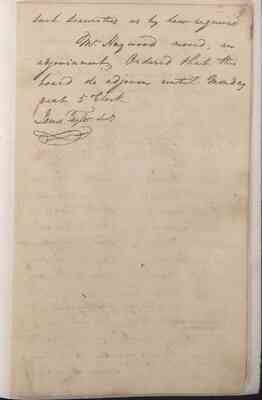 such securities as by law required
Mr. Haywood moved, an
adjournment, Ordered that this
board do adjourn until Monday
next 5 Clock